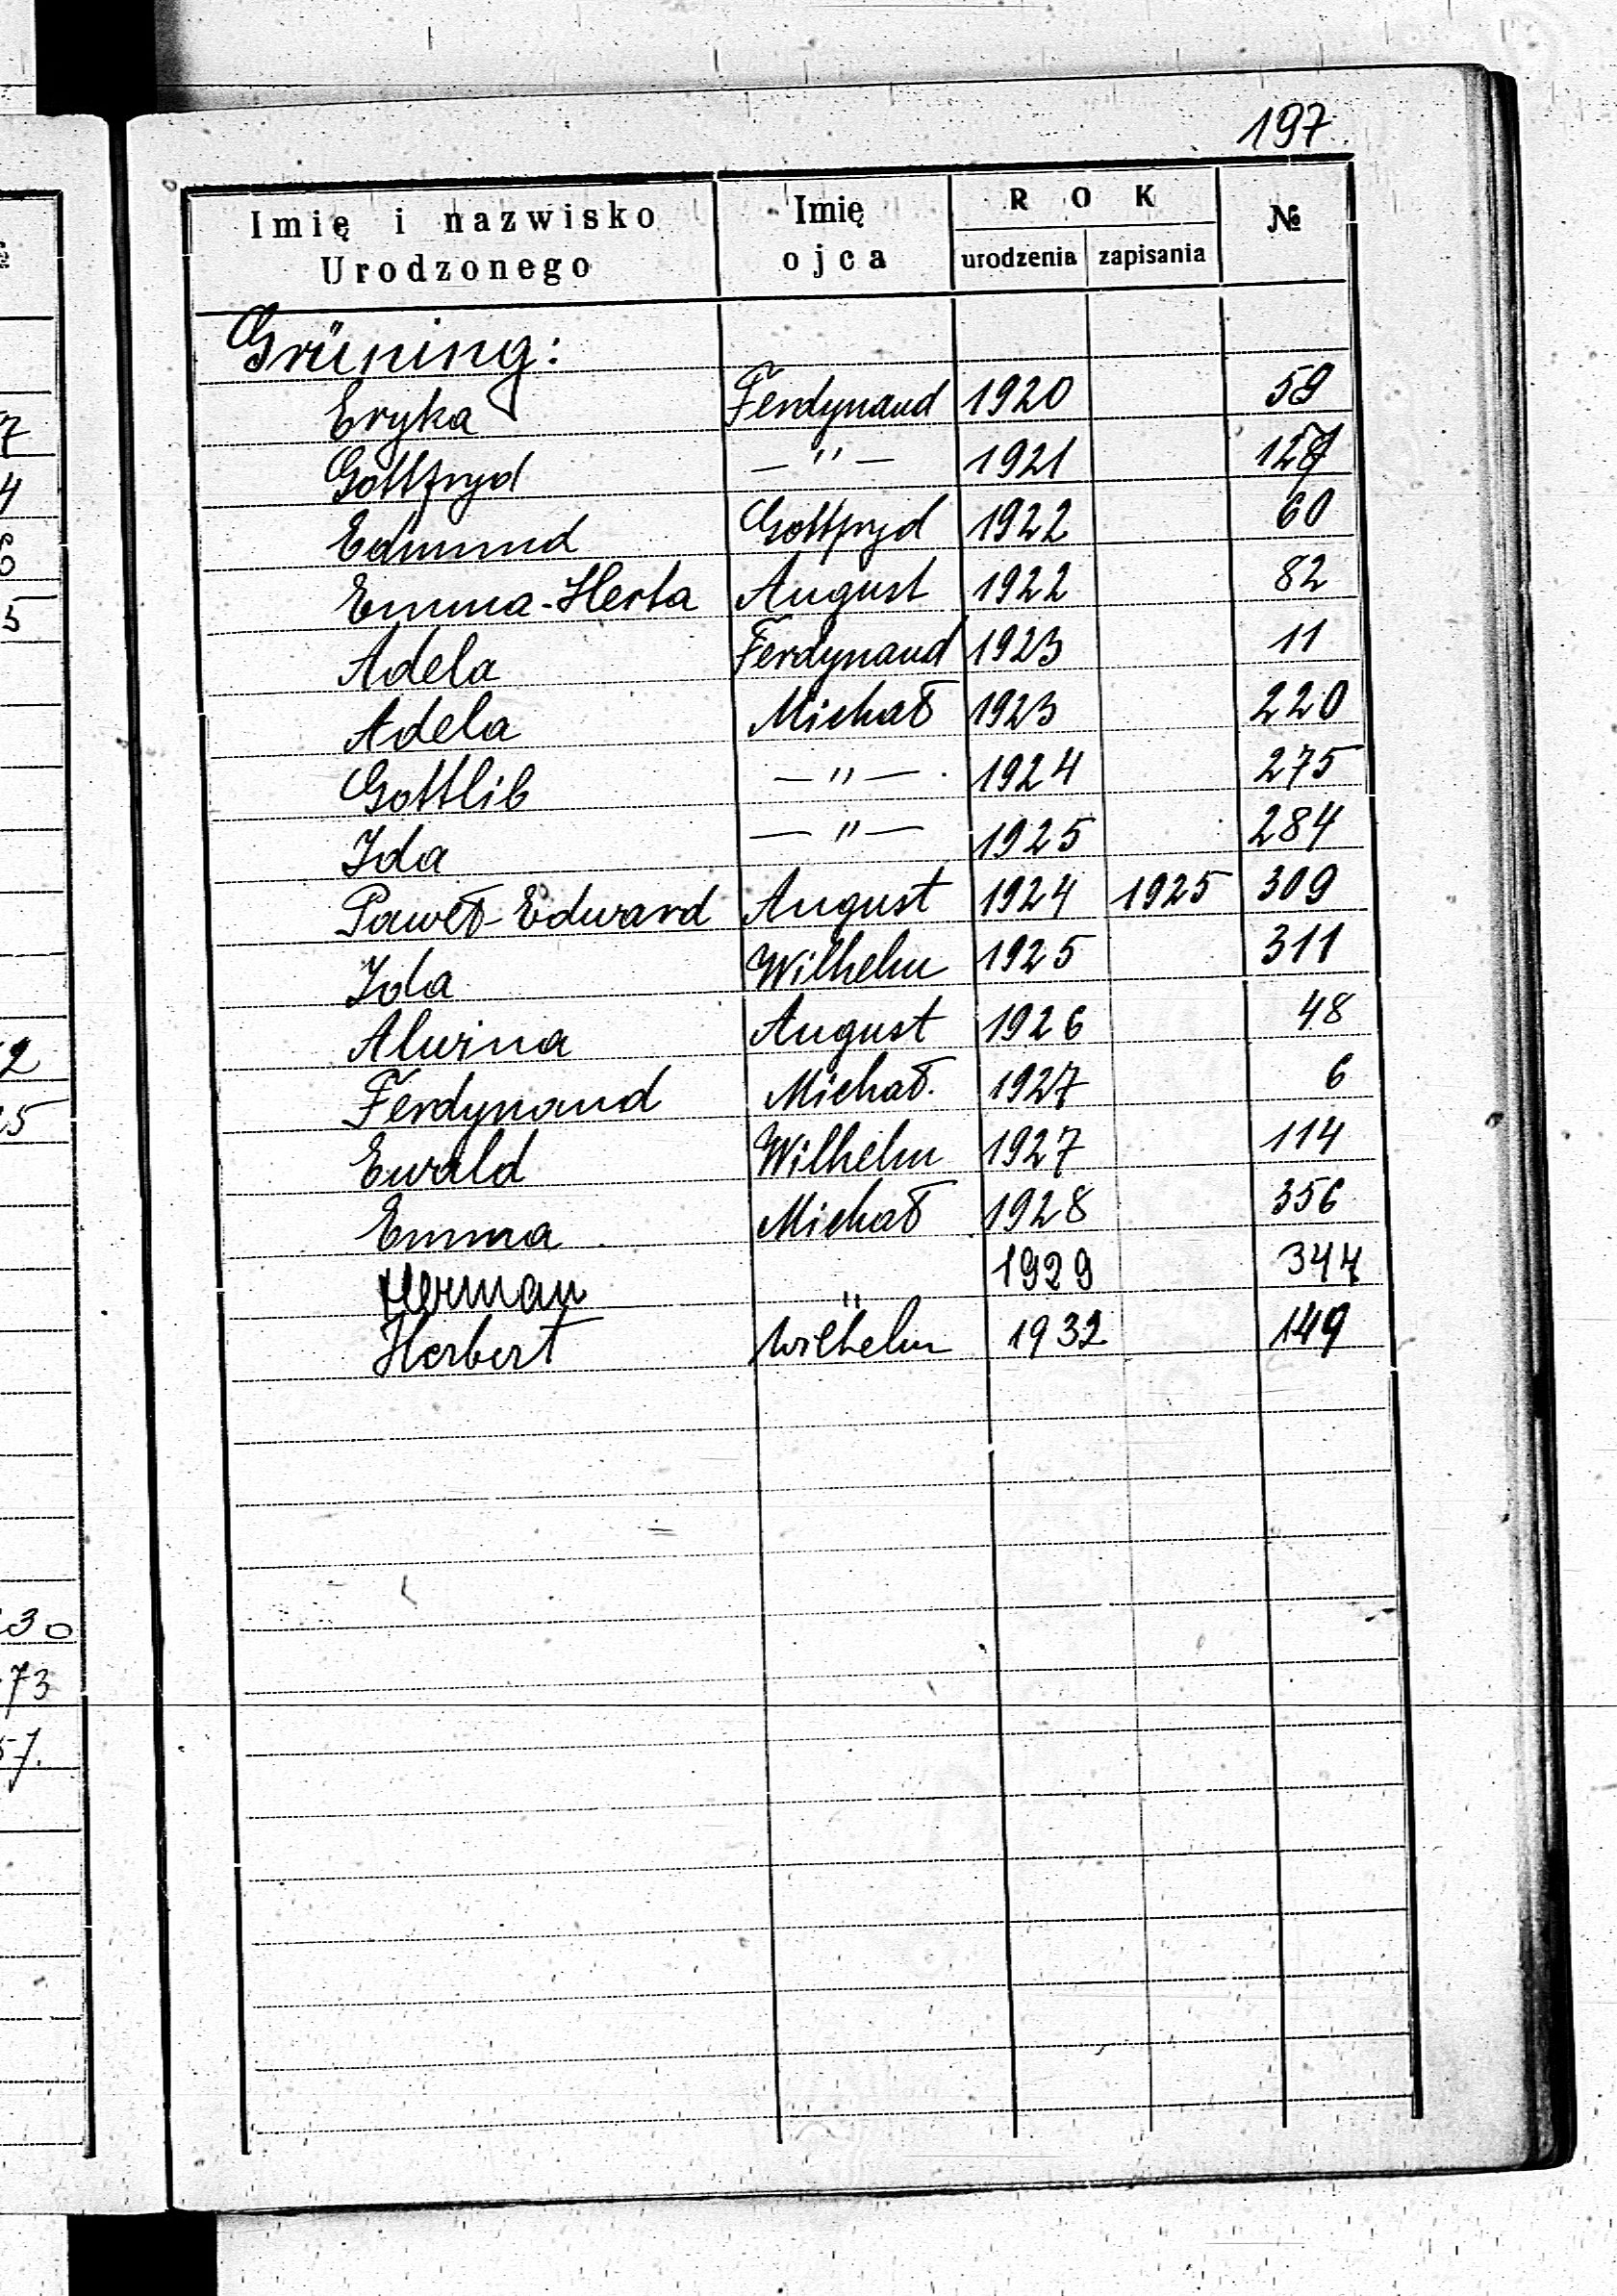 197
Imię i nazwisko Urodzonego | Imię ojca | ROK urodzenia | zapisania | №
Grüning:
Eryka Ferdynand 1920 59
Gottfryd — " — 1921
Edmund Gottfryd 1922 60
Emma-Herta August 1922 82
Adela Ferdynand 1923 11
Adela Michał 1923 220
Gottlib — " — 1924 275
Ida — " — 1925 284
Paweł-Edward August 1924 1925 309
Ida Wilhelm 1925 311
Alwina August 1926 48
Ferdynand Michał 1927 6
Ewald Wilhelm 1927 114
Emma Michał 1928 356
Herman " 1929 344
Herbert Wilhelm 1932 149